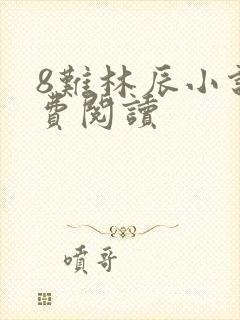 8難林辰小
費閱讀
噴哥